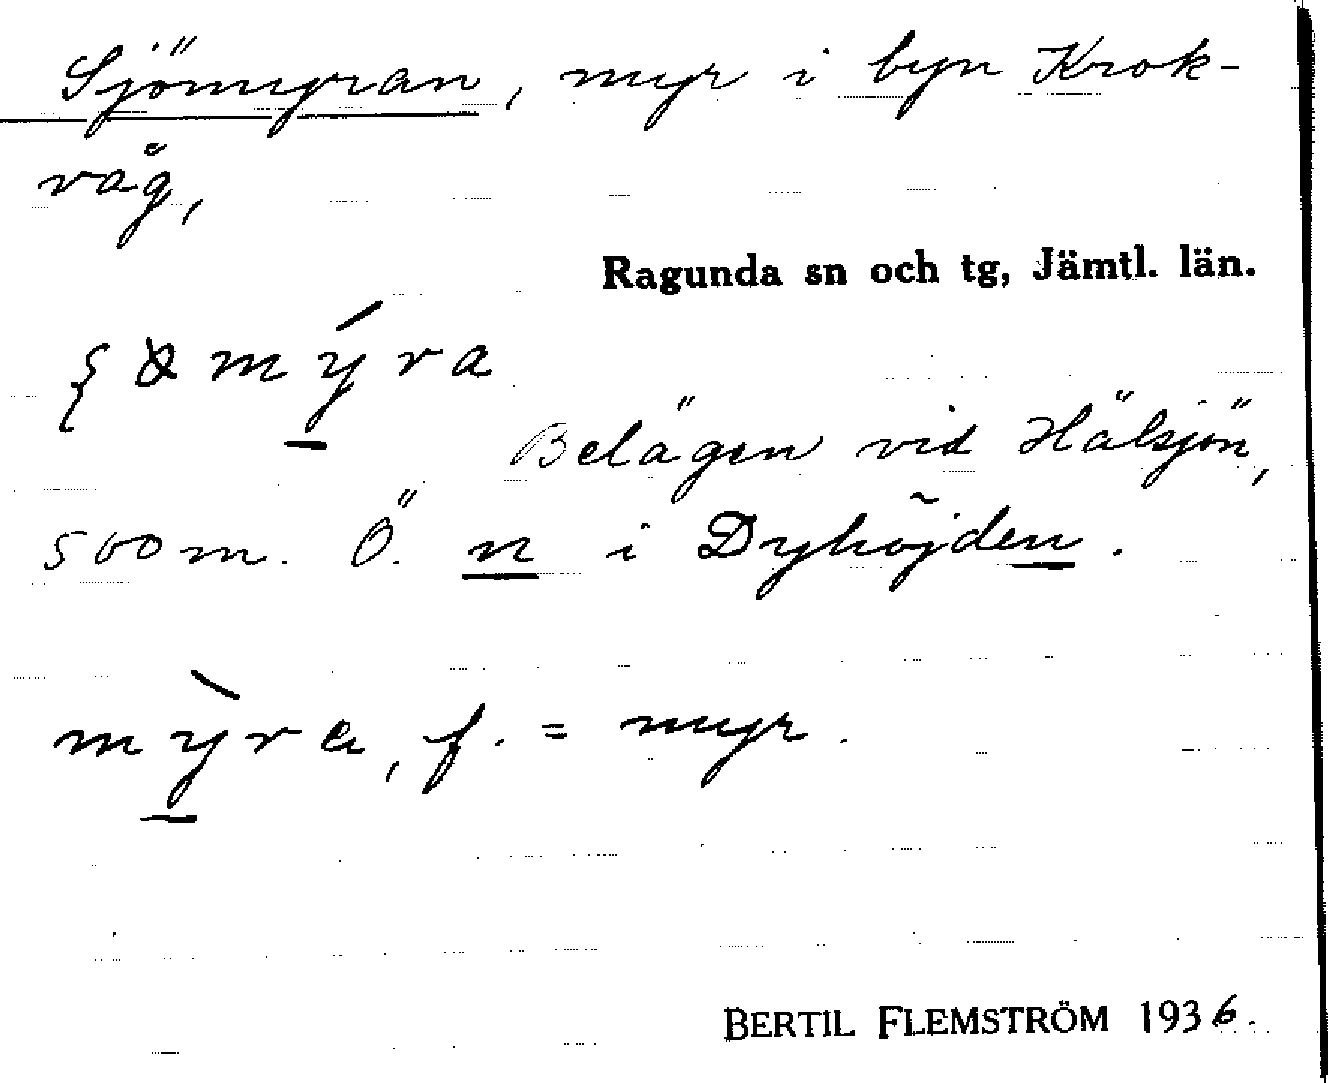 Sjömyran, myr i byn Krok-
våg,
Ragunda sn och tg, Jämtl. län.
mýra
Belägen vid Hälsjön,
500 m. Ö. n i Dryhöjden.
mỳra, f. = myr.
BERTIL FLEMSTRÖM 1936.